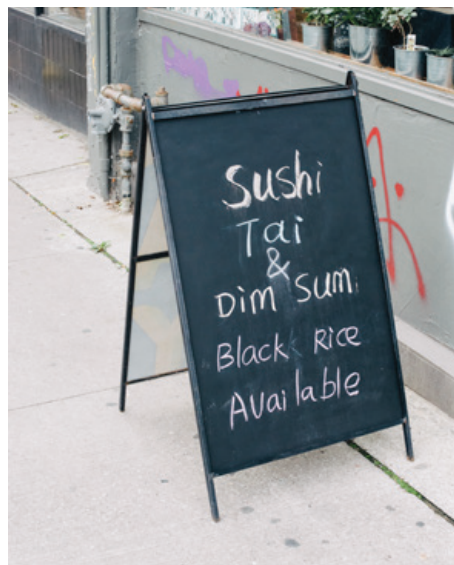 Sushi
Tai
&
Dim Sum
Black Rice
Available